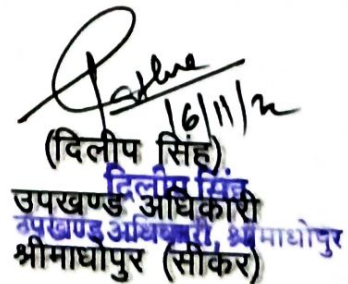 16/11/22
(दिलीप सिंह)
दिलीप सिंह
उपखण्ड अधिकारी
उपखण्ड अधिकारी, श्रीमाधोपुर
श्रीमाधोपुर (सीकर)